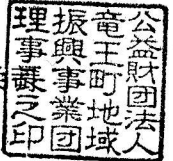 公益財団法人
竜王町地域
振興事業団
理事長之印